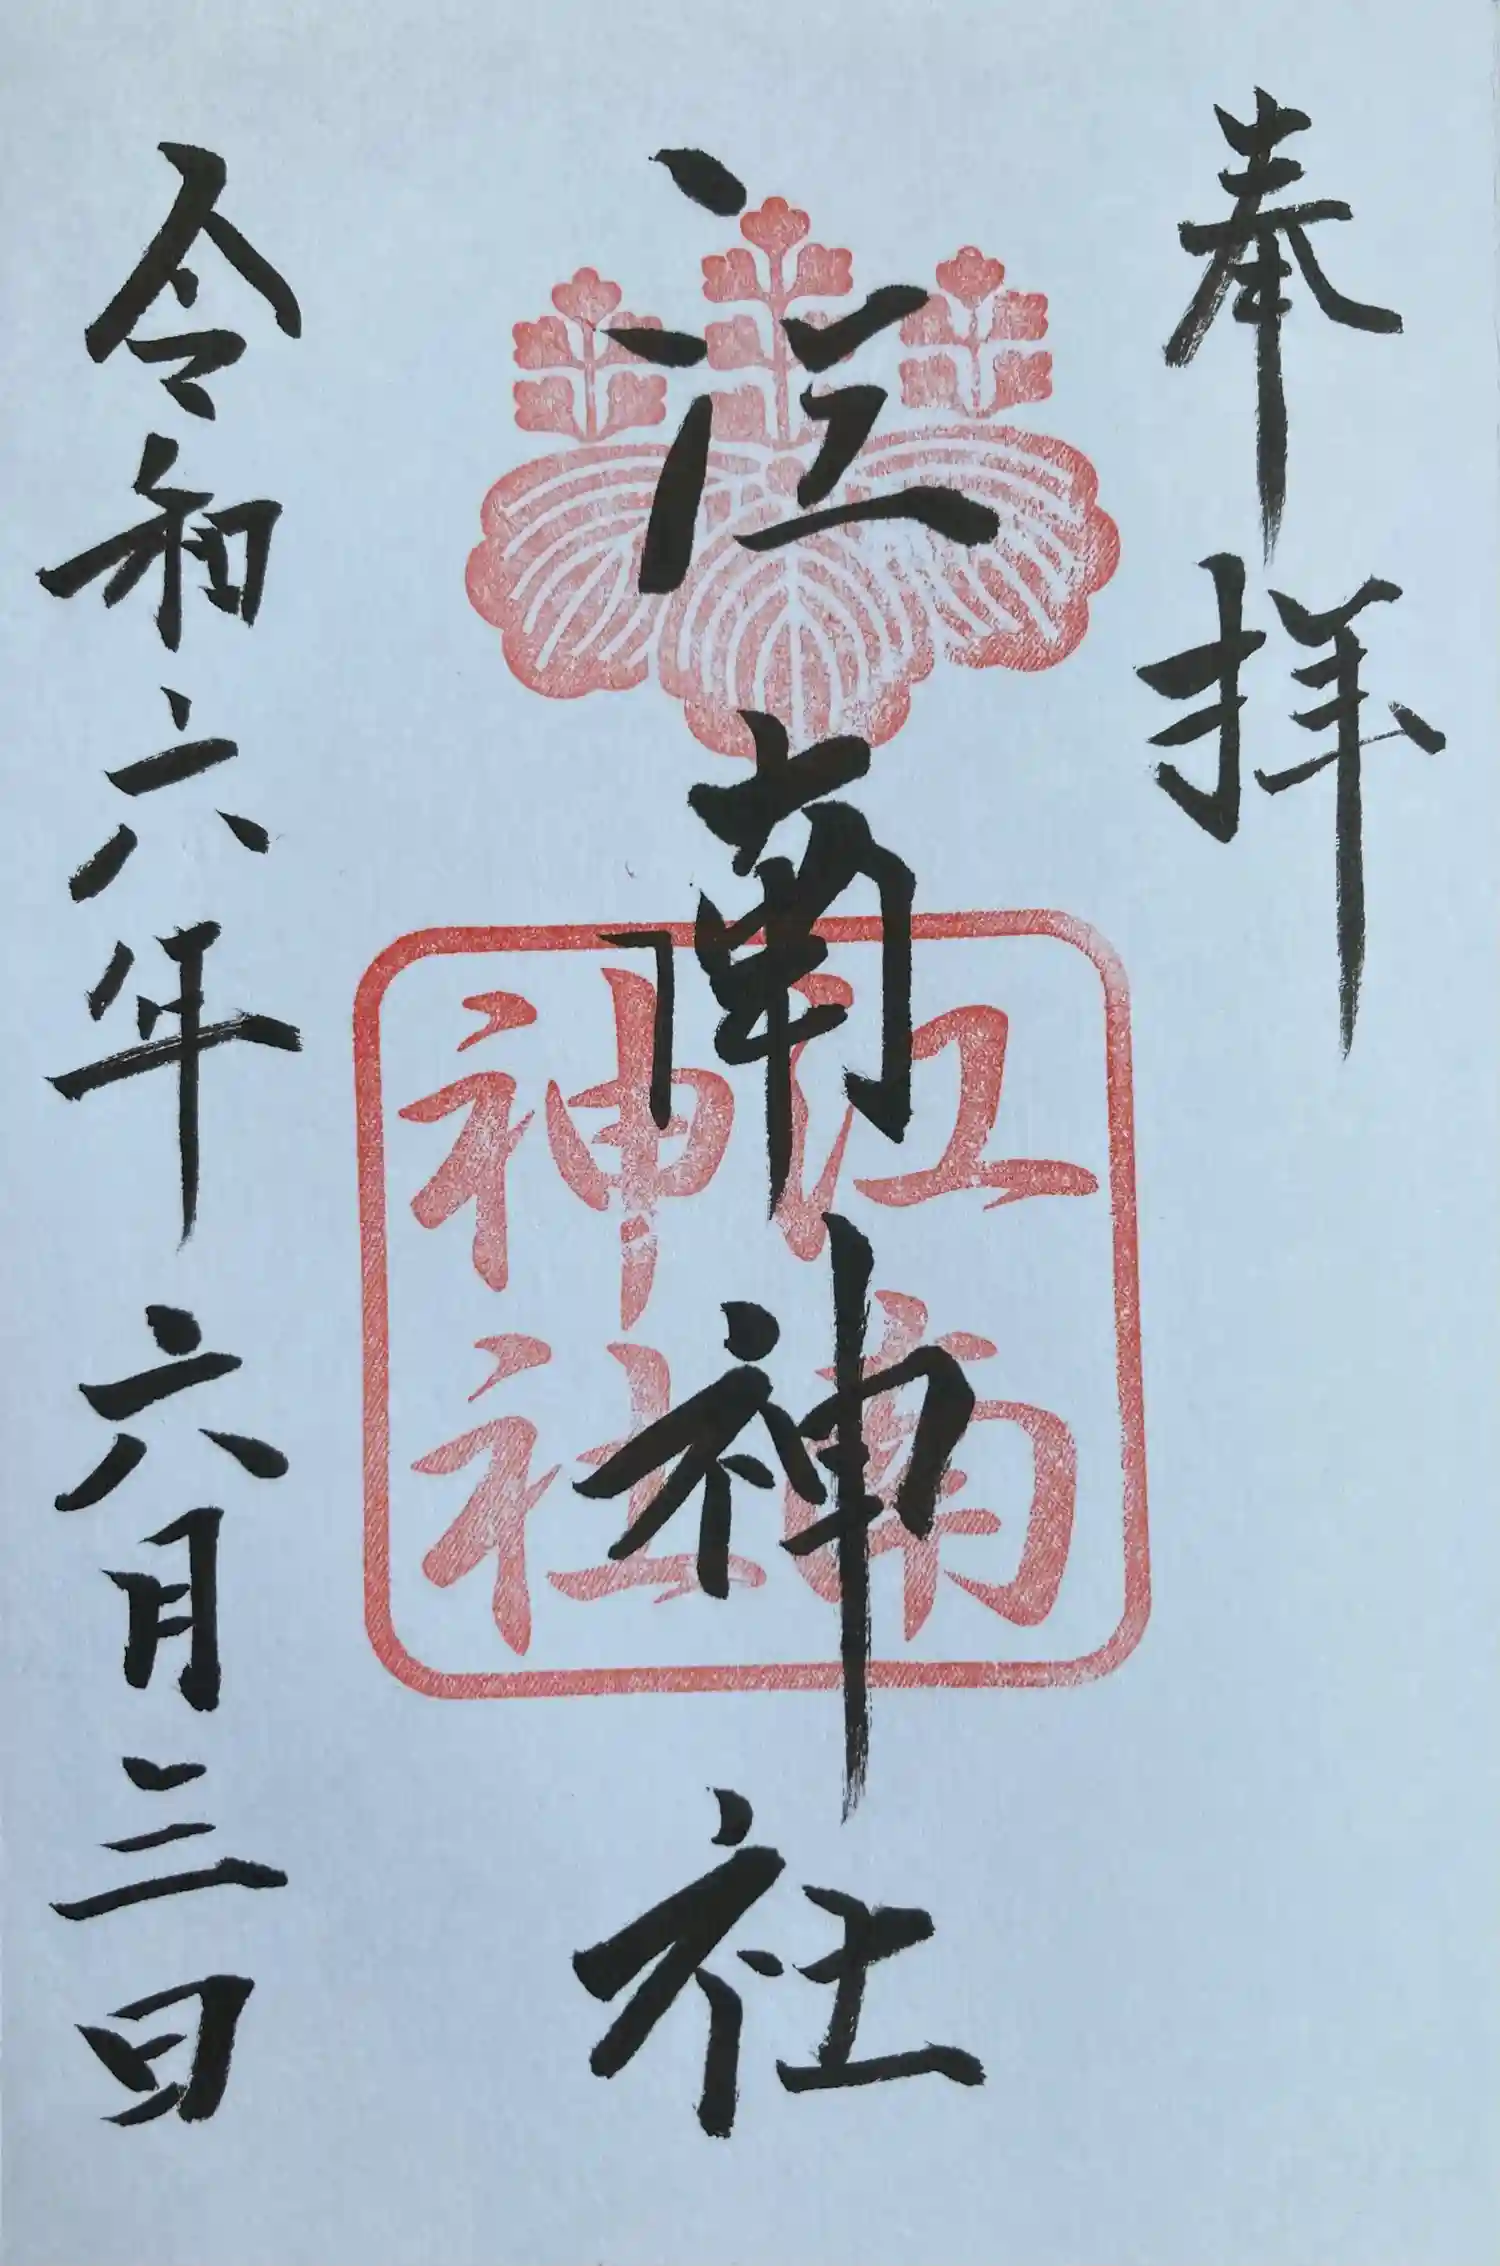 奉拝
江南神社
江南
神社
令和六年六月三日